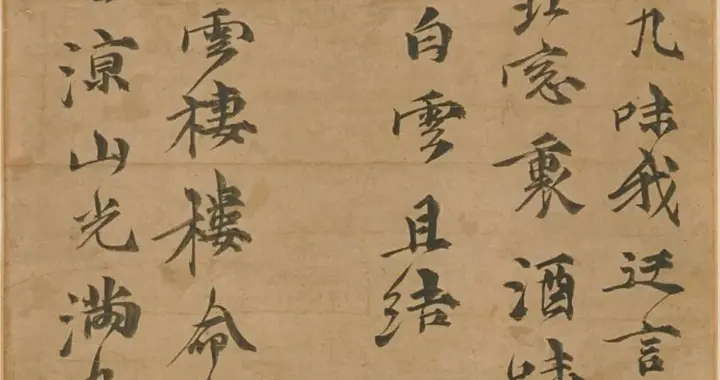 九味我迂言
窓裏酒
白雲且結
雲棲樓命
涼山光滿